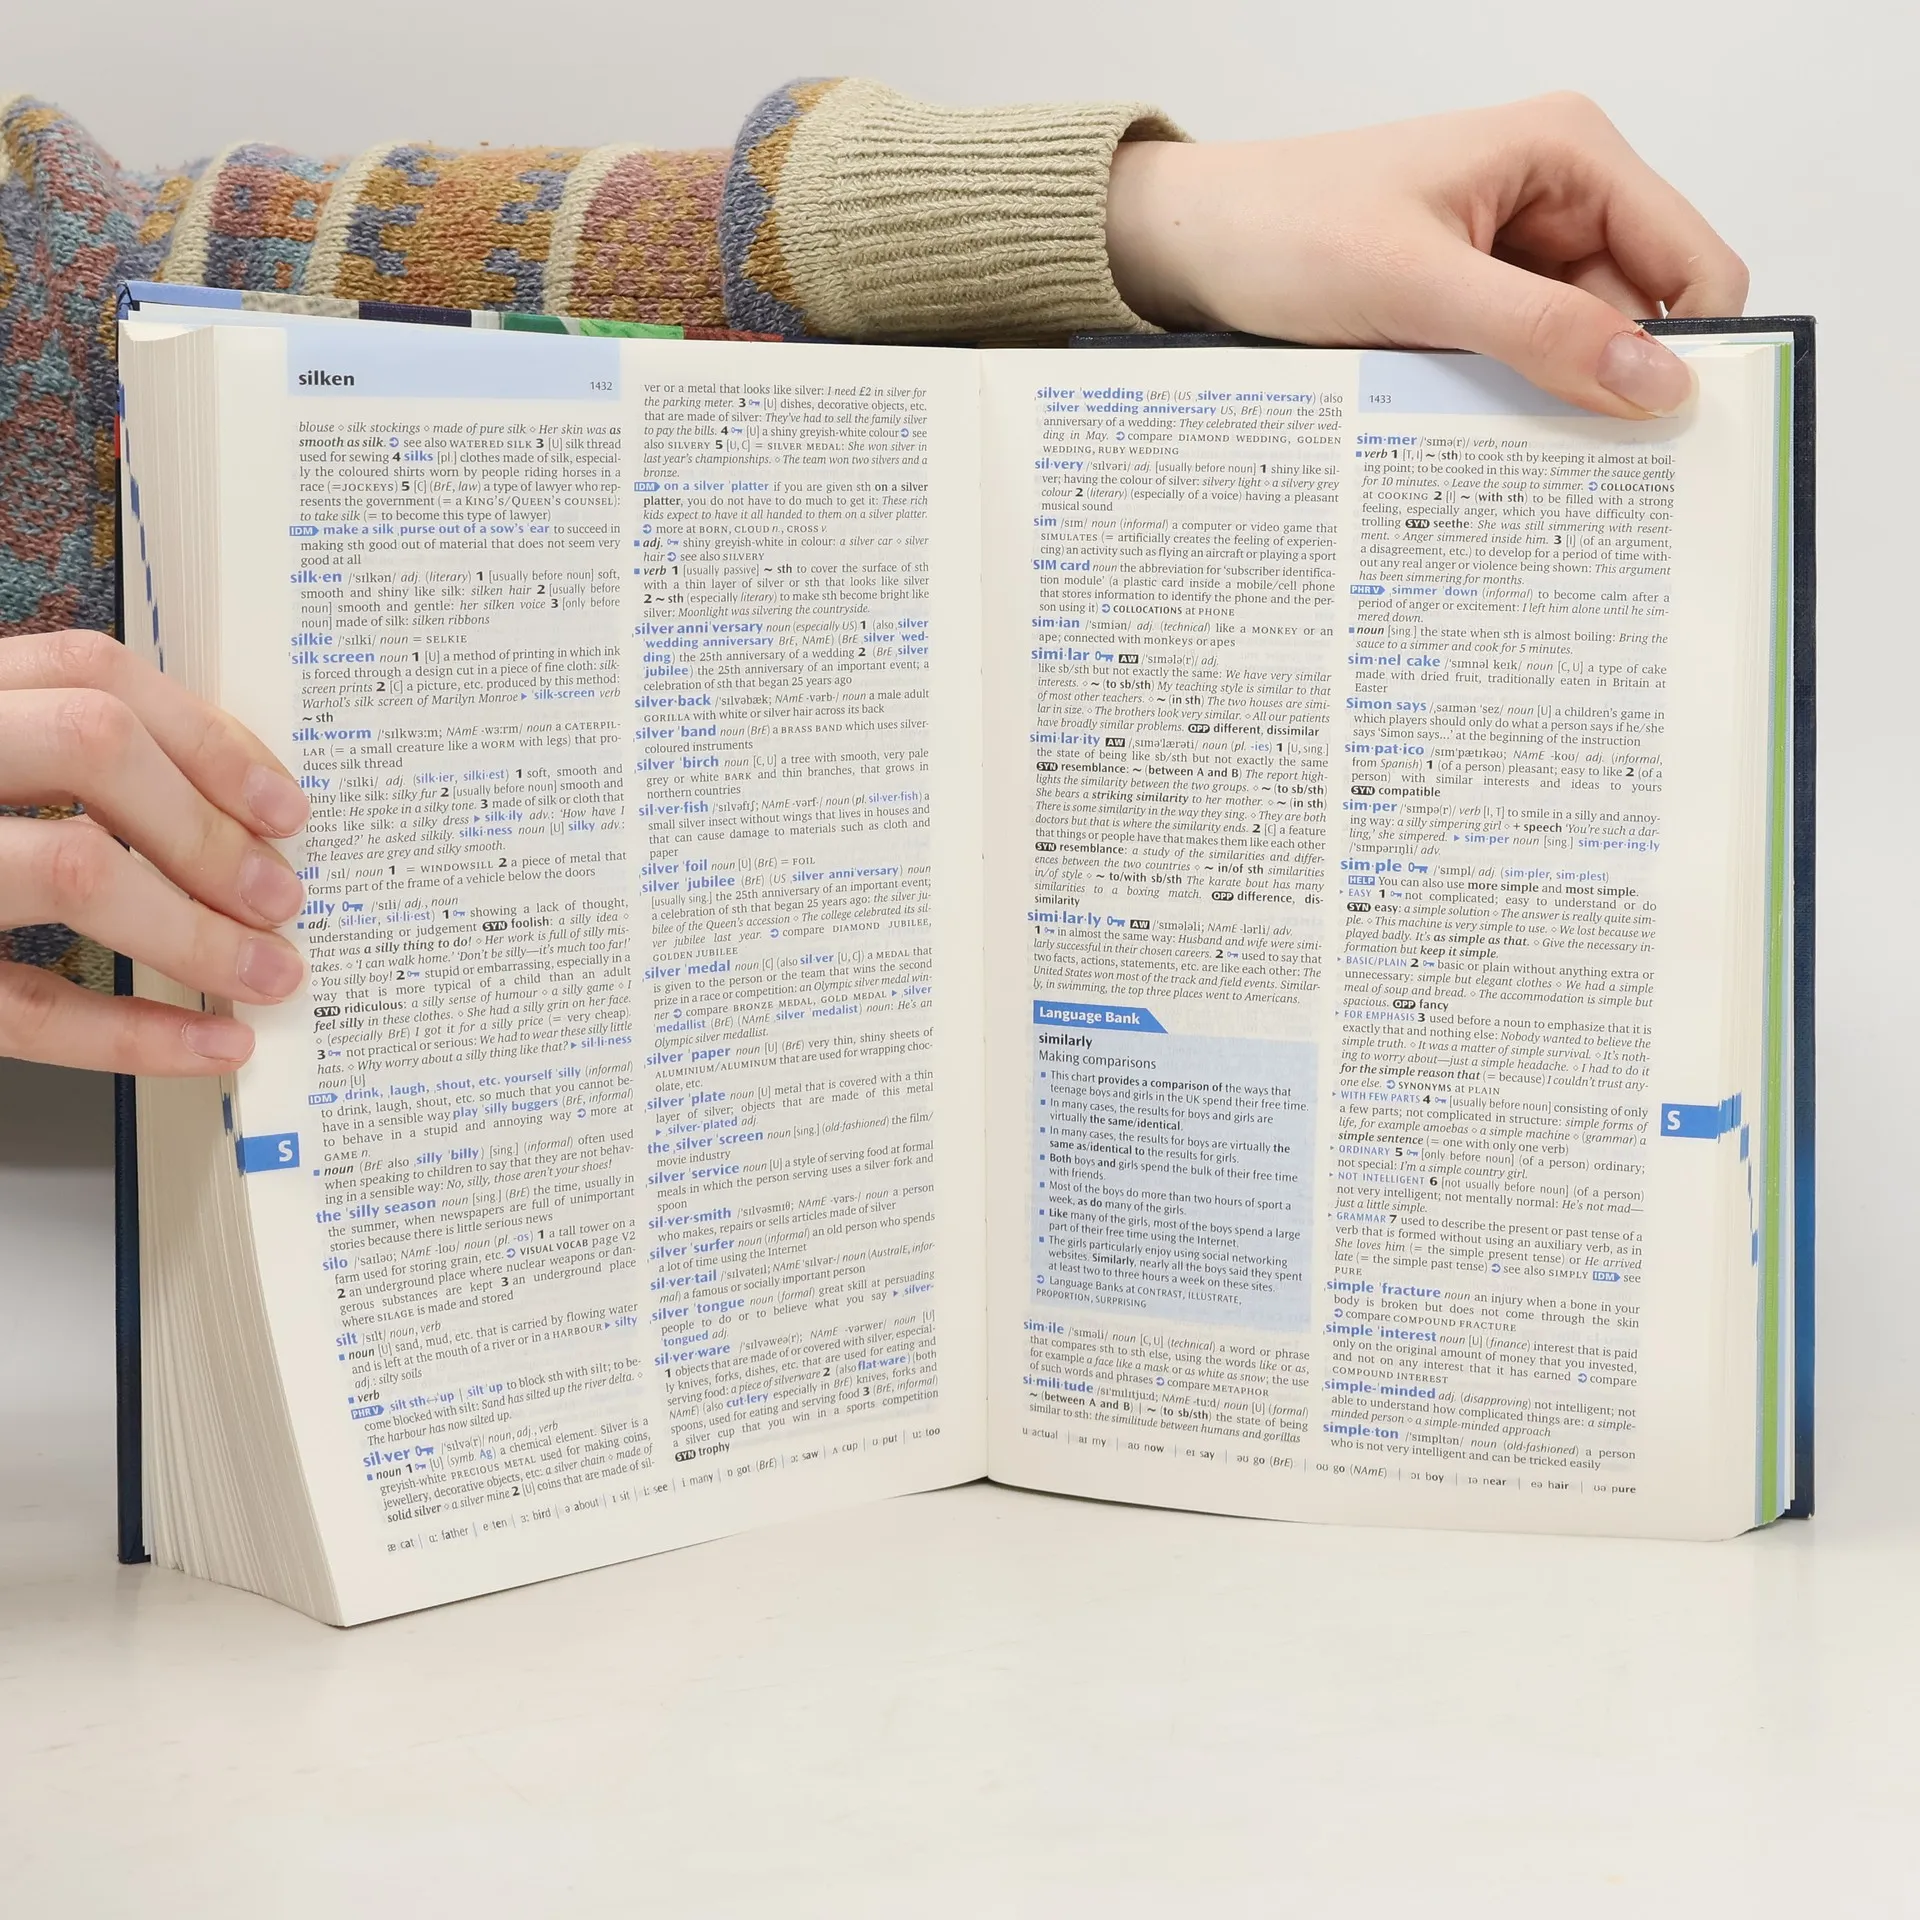 silken
1432
blouse ⋄ silk stockings ⋄ made of pure silk ⋄ Her skin was as
smooth as silk. ➲ see also WATERED SILK 3 [U] silk thread
used for sewing 4 silks [pl.] clothes made of silk, especial-
ly the coloured shirts worn by people riding horses in a
race (=JOCKEYS) 5 [C] (BrE, law) a type of lawyer who rep-
resents the government (= a KING'S/QUEEN'S COUNSEL):
to take silk (= to become this type of lawyer)
IDM make a silk ˌpurse out of a sow's ˈear to succeed in
making sth good out of material that does not seem very
good at all
silk·en /ˈsɪlkən/ adj. (literary) 1 [usually before noun] soft,
smooth and shiny like silk: silken hair 2 [usually before
noun] smooth and gentle: her silken voice 3 [only before
noun] made of silk: silken ribbons
silkie /ˈsɪlki/ noun = SELKIE
ˈsilk screen noun 1 [U] a method of printing in which ink
is forced through a design cut in a piece of fine cloth: silk-
screen prints 2 [C] a picture, etc. produced by this method:
Warhol's silk screen of Marilyn Monroe ▸ ˈsilk-screen verb
~ sth
silk·worm /ˈsɪlkwɜːm; NAmE -wɜːrm/ noun a CATERPIL-
LAR (= a small creature like a WORM with legs) that pro-
duces silk thread
silky /ˈsɪlki/ adj. (silk·ier, silki·est) 1 soft, smooth and
shiny like silk: silky fur 2 [usually before noun] smooth and
gentle: He spoke in a silky tone. 3 made of silk or cloth that
looks like silk: a silky dress ▸ silk·ily adv.: 'How have I
changed?' he asked silkily. silki·ness noun [U] silky adv.:
The leaves are grey and silky smooth.
sill /sɪl/ noun 1 = WINDOWSILL 2 a piece of metal that
forms part of the frame of a vehicle below the doors
silly /ˈsɪli/ adj., noun
■ adj. (sil·lier, sil·li·est) 1 showing a lack of thought,
understanding or judgement SYN foolish: a silly idea ⋄
That was a silly thing to do! ⋄ Her work is full of silly mis-
takes. ⋄ 'I can walk home.' 'Don't be silly—it's much too far!'
⋄ You silly boy! 2 stupid or embarrassing, especially in a
way that is more typical of a child than an adult
SYN ridiculous: a silly sense of humour ⋄ a silly game ⋄ I
feel silly in these clothes. ⋄ She had a silly grin on her face.
⋄ (especially BrE) I got it for a silly price (= very cheap).
3 not practical or serious: We had to wear these silly little
hats. ⋄ Why worry about a silly thing like that? ▸ sil·li·ness
noun [U]
IDM ˌdrink, ˌlaugh, ˌshout, etc. yourself ˈsilly (informal)
to drink, laugh, shout, etc. so much that you cannot be-
have in a sensible way play ˌsilly ˈbuggers (BrE, informal)
to behave in a stupid and annoying way ➲ more at
GAME n.
■ noun (BrE also ˌsilly ˈbilly) [sing.] (informal) often used
when speaking to children to say that they are not behav-
ing in a sensible way: No, silly, those aren't your shoes!
the ˈsilly season noun [sing.] (BrE) the time, usually in
the summer, when newspapers are full of unimportant
stories because there is little serious news
silo /ˈsaɪləʊ; NAmE -loʊ/ noun (pl. -os) 1 a tall tower on a
farm used for storing grain, etc. ➲ VISUAL VOCAB page V2
2 an underground place where nuclear weapons or dan-
gerous substances are kept 3 an underground place
where SILAGE is made and stored
silt /sɪlt/ noun, verb
■ noun [U] sand, mud, etc. that is carried by flowing water
and is left at the mouth of a river or in a HARBOUR ▸ silty
adj.: silty soils
■ verb
PHR V ˌsilt sth↔ˈup | ˌsilt ˈup to block sth with silt; to be-
come blocked with silt: Sand has silted up the river delta. ⋄
The harbour has now silted up.
sil·ver /ˈsɪlvə(r)/ noun, adj., verb
■ noun 1 [U] (symb. Ag) a chemical element. Silver is a
greyish-white PRECIOUS METAL used for making coins,
jewellery, decorative objects, etc: a silver chain ⋄ made of
solid silver ⋄ a silver mine 2 [U] coins that are made of sil-
ver or a metal that looks like silver: I need £2 in silver for
the parking meter. 3 [U] dishes, decorative objects, etc.
that are made of silver: They've had to sell the family silver
to pay the bills. 4 [U] a shiny greyish-white colour ➲ see
also SILVERY 5 [U, C] = SILVER MEDAL: She won silver in
last year's championships. ⋄ The team won two silvers and a
bronze.
IDM on a silver ˈplatter if you are given sth on a silver
platter, you do not have to do much to get it: These rich
kids expect to have it all handed to them on a silver platter.
➲ more at BORN, CLOUD n., CROSS v.
■ adj. shiny greyish-white in colour: a silver car ⋄ silver
hair ➲ see also SILVERY
■ verb 1 [usually passive] ~ sth to cover the surface of sth
with a thin layer of silver or sth that looks like silver
2 ~ sth (especially literary) to make sth become bright like
silver: Moonlight was silvering the countryside.
ˌsilver anniˈversary noun (especially US) 1 (also ˌsilver
ˈwedding anniversary BrE, NAmE) (BrE ˌsilver ˈwed-
ding) the 25th anniversary of a wedding 2 (BrE ˌsilver
ˈjubilee) the 25th anniversary of an important event; a
celebration of sth that began 25 years ago
silver·back /ˈsɪlvəbæk; NAmE -vərb-/ noun a male adult
GORILLA with white or silver hair across its back
ˌsilver ˈband noun (BrE) a BRASS BAND which uses silver-
coloured instruments
ˌsilver ˈbirch noun [C, U] a tree with smooth, very pale
grey or white BARK and thin branches, that grows in
northern countries
sil·ver·fish /ˈsɪlvəfɪʃ; NAmE -vərf-/ noun (pl. sil·ver·fish) a
small silver insect without wings that lives in houses and
that can cause damage to materials such as cloth and
paper
ˌsilver ˈfoil noun [U] (BrE) = FOIL
ˌsilver ˈjubilee (BrE) (US ˌsilver anniˈversary) noun
[usually sing.] the 25th anniversary of an important event;
a celebration of sth that began 25 years ago: the silver ju-
bilee of the Queen's accession ⋄ The college celebrated its sil-
ver jubilee last year. ➲ compare DIAMOND JUBILEE,
GOLDEN JUBILEE
ˌsilver ˈmedal noun [C] (also sil·ver [U, C]) a MEDAL that
is given to the person or the team that wins the second
prize in a race or competition: an Olympic silver medal win-
ner ➲ compare BRONZE MEDAL, GOLD MEDAL ▸ ˌsilver
ˈmedallist (BrE) (NAmE ˌsilver ˈmedalist) noun: He's an
Olympic silver medallist.
ˌsilver ˈpaper noun [U] (BrE) very thin, shiny sheets of
ALUMINIUM/ALUMINUM that are used for wrapping choc-
olate, etc.
ˌsilver ˈplate noun [U] metal that is covered with a thin
layer of silver; objects that are made of this metal
▸ ˌsilver-ˈplated adj.
the ˌsilver ˈscreen noun [sing.] (old-fashioned) the film/
movie industry
ˌsilver ˈservice noun [U] a style of serving food at formal
meals in which the person serving uses a silver fork and
spoon
sil·ver·smith /ˈsɪlvəsmɪθ; NAmE -vərs-/ noun a person
who makes, repairs or sells articles made of silver
ˌsilver ˈsurfer noun (informal) an old person who spends
a lot of time using the Internet
sil·ver·tail /ˈsɪlvəteɪl; NAmE ˈsɪlvər-/ noun (AustralE, infor-
mal) a famous or socially important person
ˌsilver ˈtongue noun (formal) great skill at persuading
people to do or to believe what you say ▸ ˌsilver-
ˈtongued adj.
sil·ver·ware /ˈsɪlvəweə(r); NAmE -vərwer/ noun [U]
1 objects that are made of or covered with silver, especial-
ly knives, forks, dishes, etc. that are used for eating and
serving food: a piece of silverware 2 (also flat·ware) (both
NAmE) (also cut·lery especially in BrE) knives, forks and
spoons, used for eating and serving food 3 (BrE, informal)
a silver cup that you win in a sports competition
SYN trophy
S
æ cat | ɑː father | e ten | ɜː bird | ə about | ɪ sit | iː see | i many | ɒ got (BrE) | ɔː saw | ʌ cup | ʊ put | uː too
1433
ˌsilver ˈwedding (BrE) (US ˌsilver anniˈversary) (also
ˌsilver ˈwedding anniversary US, BrE) noun the 25th
anniversary of a wedding: They celebrated their silver wed-
ding in May. ➲ compare DIAMOND WEDDING, GOLDEN
WEDDING, RUBY WEDDING
sil·very /ˈsɪlvəri/ adj. [usually before noun] 1 shiny like sil-
ver; having the colour of silver: silvery light ⋄ a silvery grey
colour 2 (literary) (especially of a voice) having a pleasant
musical sound
sim /sɪm/ noun (informal) a computer or video game that
SIMULATES (= artificially creates the feeling of experien-
cing) an activity such as flying an aircraft or playing a sport
ˈSIM card noun the abbreviation for 'subscriber identifica-
tion module' (a plastic card inside a mobile/cell phone
that stores information to identify the phone and the per-
son using it) ➲ COLLOCATIONS at PHONE
sim·ian /ˈsɪmiən/ adj. (technical) like a MONKEY or an
ape; connected with monkeys or apes
simi·lar AW /ˈsɪmələ(r)/ adj.
like sb/sth but not exactly the same: We have very similar
interests. ⋄ ~ (to sb/sth) My teaching style is similar to that
of most other teachers. ⋄ ~ (in sth) The two houses are simi-
lar in size. ⋄ The brothers look very similar. ⋄ All our patients
have broadly similar problems. OPP different, dissimilar
simi·lar·ity AW /ˌsɪməˈlærəti/ noun (pl. -ies) 1 [U, sing.]
the state of being like sb/sth but not exactly the same
SYN resemblance: ~ (between A and B) The report high-
lights the similarity between the two groups. ⋄ ~ (to sb/sth)
She bears a striking similarity to her mother. ⋄ ~ (in sth)
There is some similarity in the way they sing. ⋄ They are both
doctors but that is where the similarity ends. 2 [C] a feature
that things or people have that makes them like each other
SYN resemblance: a study of the similarities and differ-
ences between the two countries ⋄ ~ in/of sth similarities
in/of style ⋄ ~ to/with sb/sth The karate bout has many
similarities to a boxing match. OPP difference, dis-
similarity
simi·lar·ly AW /ˈsɪmələli; NAmE -lərli/ adv.
1 in almost the same way: Husband and wife were simi-
larly successful in their chosen careers. 2 used to say that
two facts, actions, statements, etc. are like each other: The
United States won most of the track and field events. Similar-
ly, in swimming, the top three places went to Americans.
Language Bank
similarly
Making comparisons
■ This chart provides a comparison of the ways that
teenage boys and girls in the UK spend their free time.
■ In many cases, the results for boys and girls are
virtually the same/identical.
■ In many cases, the results for boys are virtually the
same as/identical to the results for girls.
■ Both boys and girls spend the bulk of their free time
with friends.
■ Most of the boys do more than two hours of sport a
week, as do many of the girls.
■ Like many of the girls, most of the boys spend a large
part of their free time using the Internet.
■ The girls particularly enjoy using social networking
websites. Similarly, nearly all the boys said they spent
at least two to three hours a week on these sites.
➲ Language Banks at CONTRAST, ILLUSTRATE,
PROPORTION, SURPRISING
sim·ile /ˈsɪməli/ noun [C, U] (technical) a word or phrase
that compares sth to sth else, using the words like or as,
for example a face like a mask or as white as snow; the use
of such words and phrases ➲ compare METAPHOR
si·mili·tude /sɪˈmɪlɪtjuːd; NAmE -tuːd/ noun [U] (formal)
~ (between A and B) | ~ (to sb/sth) the state of being
similar to sth: the similitude between humans and gorillas
sim·mer /ˈsɪmə(r)/ verb, noun
■ verb 1 [T, I] ~ (sth) to cook sth by keeping it almost at boil-
ing point; to be cooked in this way: Simmer the sauce gently
for 10 minutes. ⋄ Leave the soup to simmer. ➲ COLLOCATIONS
at COOKING 2 [I] ~ (with sth) to be filled with a strong
feeling, especially anger, which you have difficulty con-
trolling SYN seethe: She was still simmering with resent-
ment. ⋄ Anger simmered inside him. 3 [I] (of an argument,
a disagreement, etc.) to develop for a period of time with-
out any real anger or violence being shown: This argument
has been simmering for months.
PHR V ˌsimmer ˈdown (informal) to become calm after a
period of anger or excitement: I left him alone until he sim-
mered down.
■ noun [sing.] the state when sth is almost boiling: Bring the
sauce to a simmer and cook for 5 minutes.
sim·nel cake /ˈsɪmnəl keɪk/ noun [C, U] a type of cake
made with dried fruit, traditionally eaten in Britain at
Easter
Simon says /ˌsaɪmən ˈsez/ noun [U] a children's game in
which players should only do what a person says if he/she
says 'Simon says…' at the beginning of the instruction
sim·pat·ico /sɪmˈpætɪkəʊ; NAmE -koʊ/ adj. (informal,
from Spanish) 1 (of a person) pleasant; easy to like 2 (of a
person) with similar interests and ideas to yours
SYN compatible
sim·per /ˈsɪmpə(r)/ verb [I, T] to smile in a silly and annoy-
ing way: a silly simpering girl ⋄ + speech 'You're such a dar-
ling,' she simpered. ▸ sim·per noun [sing.] sim·per·ing·ly
/ˈsɪmpərɪŋli/ adv.
sim·ple /ˈsɪmpl/ adj. (sim·pler, sim·plest)
HELP You can also use more simple and most simple.
▸ EASY 1 not complicated; easy to understand or do
SYN easy: a simple solution ⋄ The answer is really quite sim-
ple. ⋄ This machine is very simple to use. ⋄ We lost because we
played badly. It's as simple as that. ⋄ Give the necessary in-
formation but keep it simple.
▸ BASIC/PLAIN 2 basic or plain without anything extra or
unnecessary: simple but elegant clothes ⋄ We had a simple
meal of soup and bread. ⋄ The accommodation is simple but
spacious. OPP fancy
▸ FOR EMPHASIS 3 used before a noun to emphasize that it is
exactly that and nothing else: Nobody wanted to believe the
simple truth. ⋄ It was a matter of simple survival. ⋄ It's noth-
ing to worry about—just a simple headache. ⋄ I had to do it
for the simple reason that (= because) I couldn't trust any-
one else. ➲ SYNONYMS at PLAIN
▸ WITH FEW PARTS 4 [usually before noun] consisting of only
a few parts; not complicated in structure: simple forms of
life, for example amoebas ⋄ a simple machine ⋄ (grammar) a
simple sentence (= one with only one verb)
▸ ORDINARY 5 [only before noun] (of a person) ordinary;
not special: I'm a simple country girl.
▸ NOT INTELLIGENT 6 [not usually before noun] (of a person)
not very intelligent; not mentally normal: He's not mad—
just a little simple.
▸ GRAMMAR 7 used to describe the present or past tense of a
verb that is formed without using an auxiliary verb, as in
She loves him (= the simple present tense) or He arrived
late (= the simple past tense) ➲ see also SIMPLY IDM see
PURE
ˌsimple ˈfracture noun an injury when a bone in your
body is broken but does not come through the skin
➲ compare COMPOUND FRACTURE
ˌsimple ˈinterest noun [U] (finance) interest that is paid
only on the original amount of money that you invested,
and not on any interest that it has earned ➲ compare
COMPOUND INTEREST
ˌsimple-ˈminded adj. (disapproving) not intelligent; not
able to understand how complicated things are: a simple-
minded person ⋄ a simple-minded approach
simple·ton /ˈsɪmpltən/ noun (old-fashioned) a person
who is not very intelligent and can be tricked easily
S
u actual | aɪ my | aʊ now | eɪ say | əʊ go (BrE) | oʊ go (NAmE) | ɔɪ boy | ɪə near | eə hair | ʊə pure